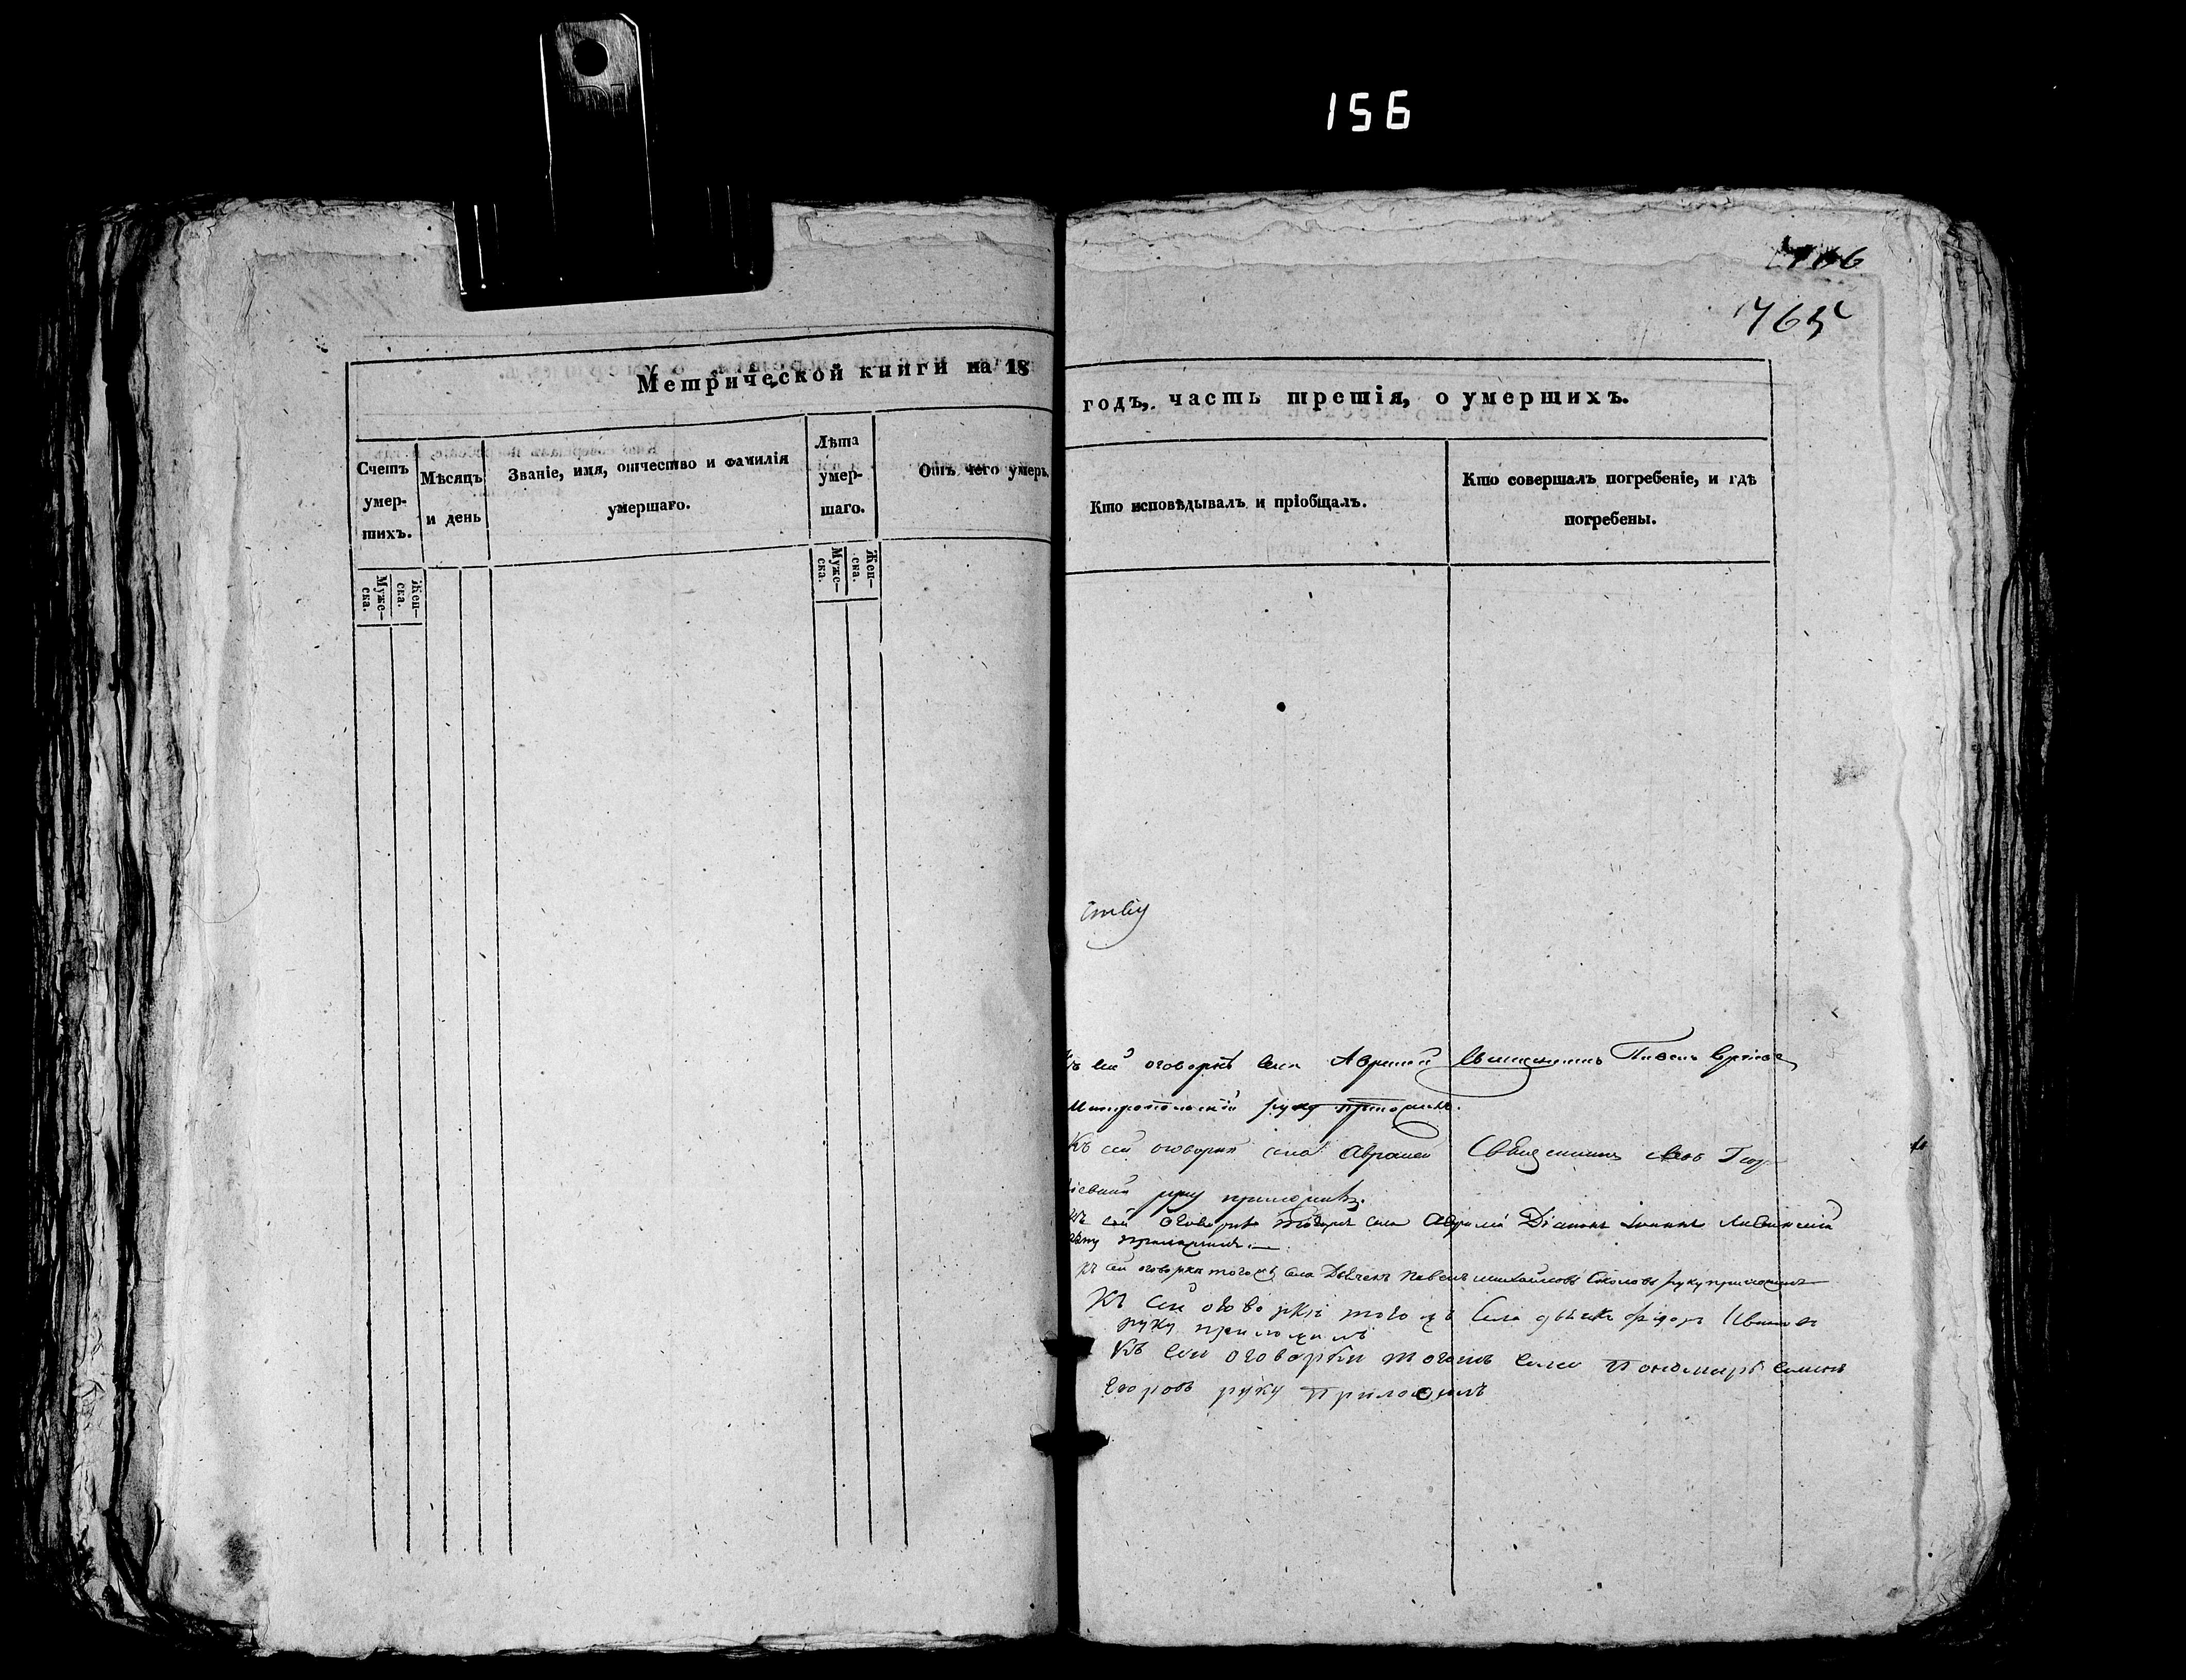 156
765
Метрической книги на 18
годъ, часть третія, о умершихъ.
Счетъ умер-шихъ.
Мѣсяцъ и день
Званіе, имя, отчество и фамилія умершаго.
Лѣта умер-шаго.
Отъ чего умеръ.
Кто исповѣдывалъ и пріобщалъ.
Кто совершалъ погребеніе, и гдѣ погребены.
Муже-ска.
Жен-ска.
Муже-ска.
Жен-ска.
Къ сей оговоркѣ села Авралей Священникъ Павелъ
Митропольскій руку приложилъ.
Къ сей оговорки села Авралей Священникъ Левъ Геор-
гіевскій руку приложилъ.
Къ сей оговорке тогожъ села Діаконъ Іоаннъ
руку приложилъ.
Къ сей оговорки тогожъ села Дьячекъ Павелъ Михайловъ Соколовъ руку приложилъ
Къ сей оговоркѣ тогожъ села дьячекъ Ивановъ
руку приложилъ
Къ сей оговорки тогожъ села Пономарь Семенъ
Егоровъ руку приложилъ